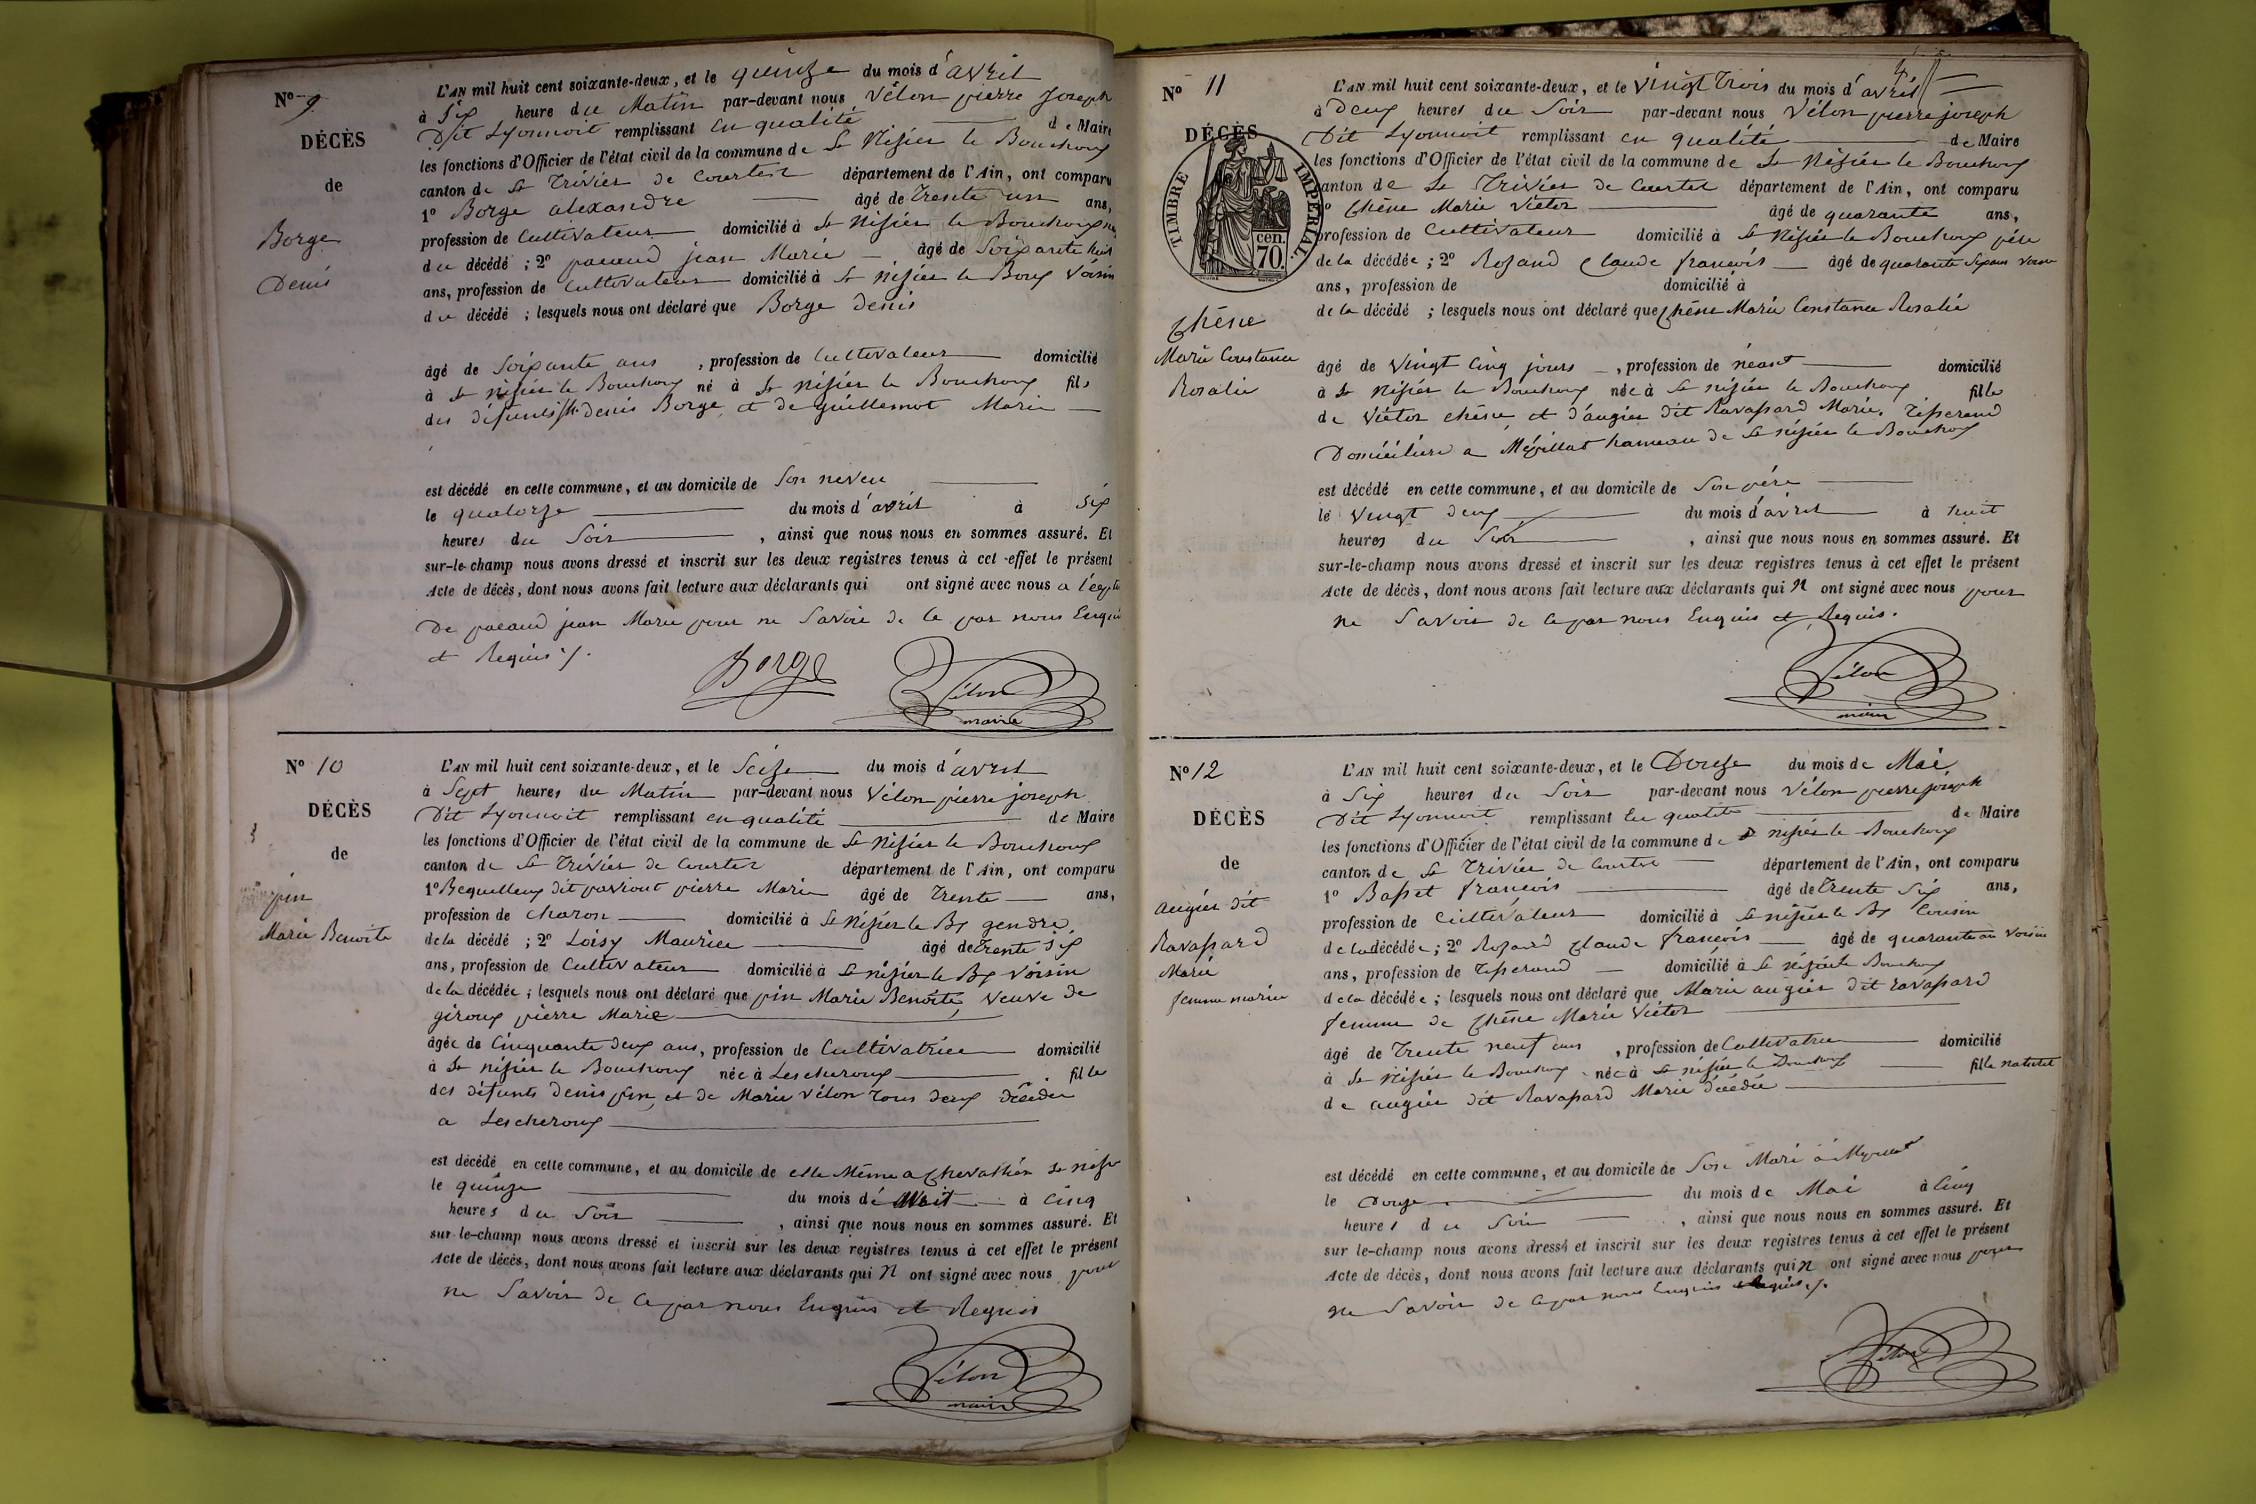 No 9
DÉCÈS
de
Borge
Denis
L'AN mil huit cent soixante-deux, et le quinze du mois d'avril
à six heure du Matin par-devant nous Vélon pierre Joseph
Dit Lyonnoit remplissant en qualité de Maire
les fonctions d'Officier de l'état civil de la commune de St Nisier le Bouchoux
canton de St Trivier de Courtest département de l'Ain, ont comparu
1o Borge alexandre âgé de Trente un ans,
profession de Cultivateur domicilié à St Nisier le Bouchoux
du décédé ; 2o pacaud jean Marie âgé de Soixante huit
ans, profession de Cultivateur domicilié à St nisier le Boux Voisin
du décédé ; lesquels nous ont déclaré que Borge denis
âgé de Soixante ans , profession de Cultivateur domicilié
à St nisier le Bouchoux né à St nisier le Bouchoux fils
des défunts denis Borge et de guillemot Marie
est décédé en cette commune, et au domicile de Son neveu
le quatorze du mois d'avril à six
heures du Soir , ainsi que nous nous en sommes assuré. Et
sur-le-champ nous avons dressé et inscrit sur les deux registres tenus à cet effet le présent
Acte de décès, dont nous avons fait lecture aux déclarants qui ont signé avec nous a
De pacaud jean Marie pour ne Savoir de ce par nous Enquis
et Requis ./.
Borge Vélon
maire
No 10
DÉCÈS
de
pin
Marie Benoite
L'AN mil huit cent soixante-deux, et le Seize du mois d'avril
à Sept heures du Matin par-devant nous Vélon pierre joseph
Dit Lyonnoit remplissant en qualité de Maire
les fonctions d'Officier de l'état civil de la commune de St Nisier le Bouchoux
canton de St Trivier de Courtes département de l'Ain, ont comparu
1o Bequelleux dit paviout pierre Marie âgé de Trente ans,
profession de charon domicilié à St Nisier le Bx gendre
de la décédé ; 2o Loisy Maurice âgé de Trente six
ans, profession de Cultivateur domicilié à St nisier le Bx Voisin
de la décédée ; lesquels nous ont déclaré que pin Marie Benoite, veuve de
giroux pierre Marie
âgée de Cinquante deux ans, profession de Cultivatrice domicilié
à St nisier le Bouchoux née à Lescheroux fille
des défunts denis pin et de Marie Vélon Tous deux décédés
a Lescheroux
est décédé en cette commune, et au domicile de elle Même a St nisier
le quinze du mois d'avril à Cinq
heures du Soir , ainsi que nous nous en sommes assuré. Et
sur-le-champ nous avons dressé et inscrit sur les deux registres tenus à cet effet le présent
Acte de décès, dont nous avons fait lecture aux déclarants qui N ont signé avec nous pour
ne Savoir de ce par nous Enquis et Requis
Vélon
maire
No 11
DÉCÈS
TIMBRE IMPÉRIAL.
70 cen.
Chêne
Marie Constance
Rosalie
L'AN mil huit cent soixante-deux, et le Vingt Trois du mois d'avril
à Deux heures du Soir par-devant nous Vélon pierre joseph
Dit Lyonnoit remplissant en qualité de Maire
les fonctions d'Officier de l'état civil de la commune de St Nisier le Bouchoux
canton de St Trivier de Courtes département de l'Ain, ont comparu
1o Chêne Marie Victor âgé de quarante ans,
profession de Cultivateur domicilié à St Nisier le Bouchoux père
de la décédée ; 2o Rozand Claude francois âgé de quarante six ans Voisin
ans, profession de domicilié à
de la décédé ; lesquels nous ont déclaré que Chêne Marie Constance Rosalie
âgé de Vingt Cinq jours , profession de néant domicilié
à St Nisier le Bouchoux née à St nisier le Bouchoux fille
de Victor chêne, et d'augier dit Ravassard Marie. Tisserand
Domiciliers a Mépillat hameau de St nisier le Bouchoux
est décédé en cette commune, et au domicile de Son père
le Vingt deux du mois d'avril à huit
heures du Soir , ainsi que nous nous en sommes assuré. Et
sur-le-champ nous avons dressé et inscrit sur les deux registres tenus à cet effet le présent
Acte de décès, dont nous avons fait lecture aux déclarants qui N ont signé avec nous pour
ne Savoir de ce par nous Enquis et Requis.
Vélon
maire
No 12
DÉCÈS
de
augier dit
Ravassard
Marie
femme
L'AN mil huit cent soixante-deux, et le Douze du mois de Mai
à Six heures du Soir par-devant nous Vélon pierre joseph
Dit Lyonnoit remplissant En qualité de Maire
les fonctions d'Officier de l'état civil de la commune de St nisier le Bouchoux
canton de St Trivier de Courtes département de l'Ain, ont comparu
1o Basset francois âgé de Trente Six ans,
profession de Cultivateur domicilié à St nisier le Bx Cousin
de la décédée ; 2o Rozand Claude francois âgé de quarante an Voisin
ans, profession de Tisserand domicilié à St nisier le Bouchoux
de la décédée ; lesquels nous ont déclaré que Marie augier dit ravassard
femme de Chêne Marie Victor
âgé de Trente neuf ans , profession de Cultivatrice domicilié
à St Nisier le Bouchoux née à St nisier le Bouchoux fille naturel
de augier dit Ravassard Marie décédée
est décédé en cette commune, et au domicile de Son Mari
le Douze du mois de Mai à Cinq
heures du Soir , ainsi que nous nous en sommes assuré. Et
sur le-champ nous avons dressé et inscrit sur les deux registres tenus à cet effet le présent
Acte de décès, dont nous avons fait lecture aux déclarants qui N ont signé avec nous pour
ne Savoir de ce par nous Enquis et Requis ./.
Vélon